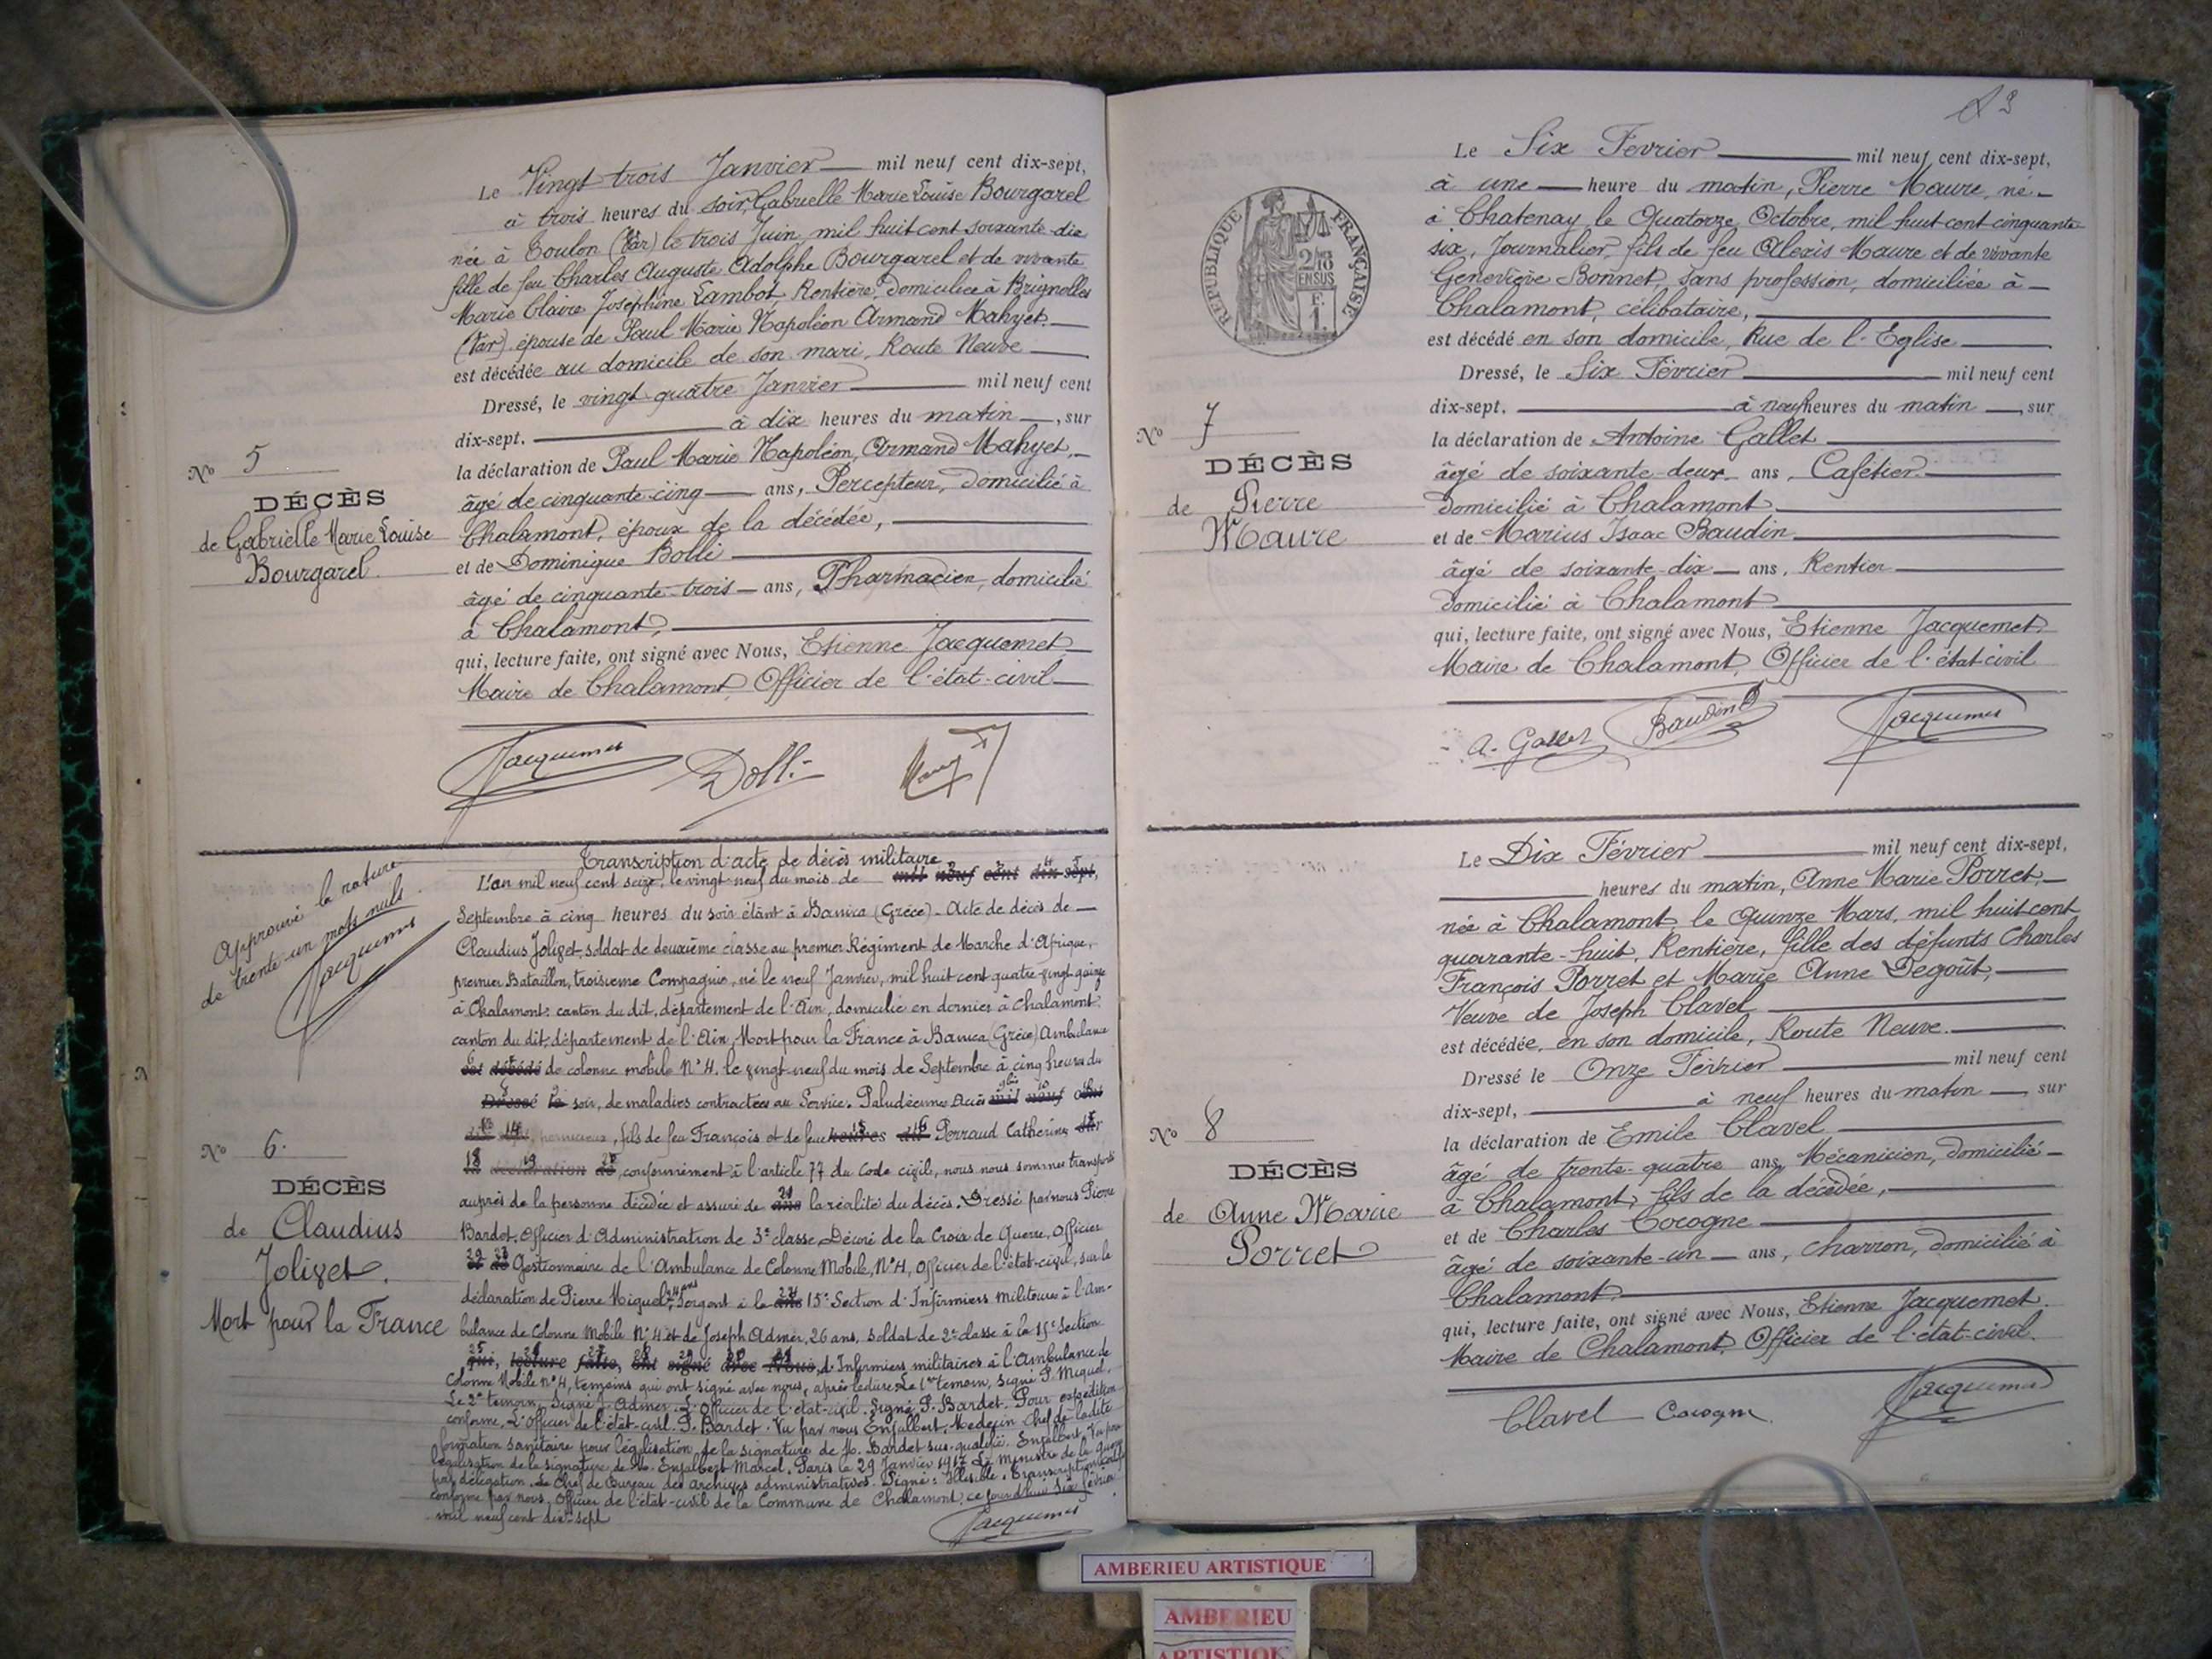 Le Vingt trois Janvier mil neuf cent dix-sept,
à trois heures du soir, Gabrielle Marie Louise Bourgarel
née à Toulon (Var) le trois Juin mil huit cent soixante-dix
fille de feu Charles Auguste Adolphe Bourgarel et de vivante
Marie Claire Joséphine Lambot, Rentière, domiciliée à Brignolles
(Var) épouse de Paul Marie Napoléon Armand Mahyet.
est décédée au domicile de son mari, Route Neuve
Dressé, le vingt-quatre Janvier mil neuf cent
dix-sept. à dix heures du matin, sur
la déclaration de Paul Marie Napoléon, Armand Mahyet,
âgé de cinquante-cinq ans, Percepteur, domicilié à
Chalamont, époux de la décédée,
et de Dominique Dolli
âgé de cinquante-trois ans, Pharmacien, domicilié
à Chalamont,
qui, lecture faite, ont signé avec Nous, Etienne Jacquemet
Maire de Chalamont, Officier de l'état-civil
Jacquemet Dolli
N° 5
DÉCÈS
de Gabrielle Marie Louise
Bourgarel.
Approuvé la rature
de trente-un mots nuls
Jacquemet
N° 6.
DÉCÈS
de Claudius
Jolivet.
Mort pour la France
Transcription d'acte de décès militaire
L'an mil neuf cent seize, le vingt-neuf du mois de mil neuf cent dix-sept,
Septembre à cinq heures du soir étant à Banica (Grèce). Acte de décès de
Claudius Jolivet, soldat de deuxième classe au premier Régiment de Marche d'Afrique,
premier Bataillon, troisième Compagnie, né le neuf Janvier, mil huit cent quatre-vingt quinze
à Chalamont, canton du dit, département de l'Ain, domicilié en dernier à Chalamont
canton du dit, département de l'Ain, Mort pour la France à Banica (Grèce) Ambulance
est décédé de colonne mobile N° 4. le vingt-neuf du mois de Septembre à cinq heures du
Dressé le soir, de maladies contractées au Service. Paludisme Accès mil neuf cent
pernicieux, fils de feu François et de feue heures du Perraud Catherine sur
la déclaration de, conformément à l'article 77 du Code civil, nous nous sommes transporté
auprès de la personne décédée et assuré de ans la réalité du décès. Dressé par nous Pierre
Bardet, Officier d'Administration de 3e classe, Décoré de la Croix de Guerre, Officier
Gestionnaire de l'Ambulance de Colonne Mobile, N° 4, Officier de l'état-civil, sur la
déclaration de Pierre Miquel, 24 ans Sergent à la ans 15e Section d'Infirmiers militaires à l'Am-
bulance de Colonne Mobile N° 4 et de Joseph Admer, 26 ans, soldat de 2e classe à la 15e Section
qui, lecture faite, ont signé avec Nous, d'Infirmiers militaires à l'Ambulance de
Colonne Mobile n° 4, témoins qui ont signé avec nous, après lecture. Le 1er témoin, signé P. Miquel.
Le 2e témoin, Signé J. Admer. L'Officier de l'état-civil. Signé P. Bardet. Pour expédition
conforme, L'Officier de l'état-civil. P. Bardet. Vu par nous Enjalbert, Médecin Chef de ladite
formation sanitaire pour légalisation de la signature de M. Bardet sus-qualifié. Enjalbert. Vu pour
légalisation de la signature de M. Enjalbert Marcel. Paris le 29 Janvier 1917 Le Ministre de la Guerre
par délégation. Le Chef de Bureau des Archives administratives. Signé: Illisible. Transcription
conforme par nous, Officier de l'état-civil de la Commune de Chalamont, ce jourd'hui six février
mil neuf cent dix-sept
Jacquemet
REPUBLIQUE FRANÇAISE
EN SUS
Le Six Février mil neuf cent dix-sept,
à une heure du matin, Pierre Maure, né
à Chatenay le Quatorze Octobre, mil huit cent cinquante-
six, Journalier, fils de feu Alexis Maure et de vivante
Geneviève Bonnet, sans profession, domiciliée à
Chalamont, célibataire,
est décédé en son domicile, Rue de l'Eglise
Dressé, le Six Février mil neuf cent
dix-sept. à neuf heures du matin, sur
la déclaration de Antoine Gallet
âgé de soixante-deux ans, Cafetier.
domicilié à Chalamont
et de Marius Isaac Baudin
âgé de soixante-dix ans, Rentier
domicilié à Chalamont
qui, lecture faite, ont signé avec Nous, Etienne Jacquemet.
Maire de Chalamont, Officier de l'état-civil
A. Gallet Baudin Jacquemet
N° 7
DÉCÈS
de Pierre
Maure
Le Dix Février mil neuf cent dix-sept,
heures du matin, Anne Marie Porret,
née à Chalamont, le Quinze Mars, mil huit cent
quarante-huit, Rentière, fille des défunts Charles
François Porret et Marie Anne Degoût,
Veuve de Joseph Clavel
est décédée, en son domicile, Route Neuve.
Dressé le Onze Février mil neuf cent
dix-sept, à neuf heures du matin, sur
la déclaration de Emile Clavel
âgé de trente-quatre ans, Mécanicien, domicilié
à Chalamont, fils de la décédée,
et de Charles Cocogne
âgé de soixante-un ans, charron, domicilié à
Chalamont
qui, lecture faite, ont signé avec Nous, Etienne Jacquemet.
Maire de Chalamont, Officier de l'état-civil.
Clavel Cocogne Jacquemet
N° 8
DÉCÈS
de Anne Marie
Porret
AMBERIEU ARTISTIQUE
AMBERIEU
ARTISTIQUE